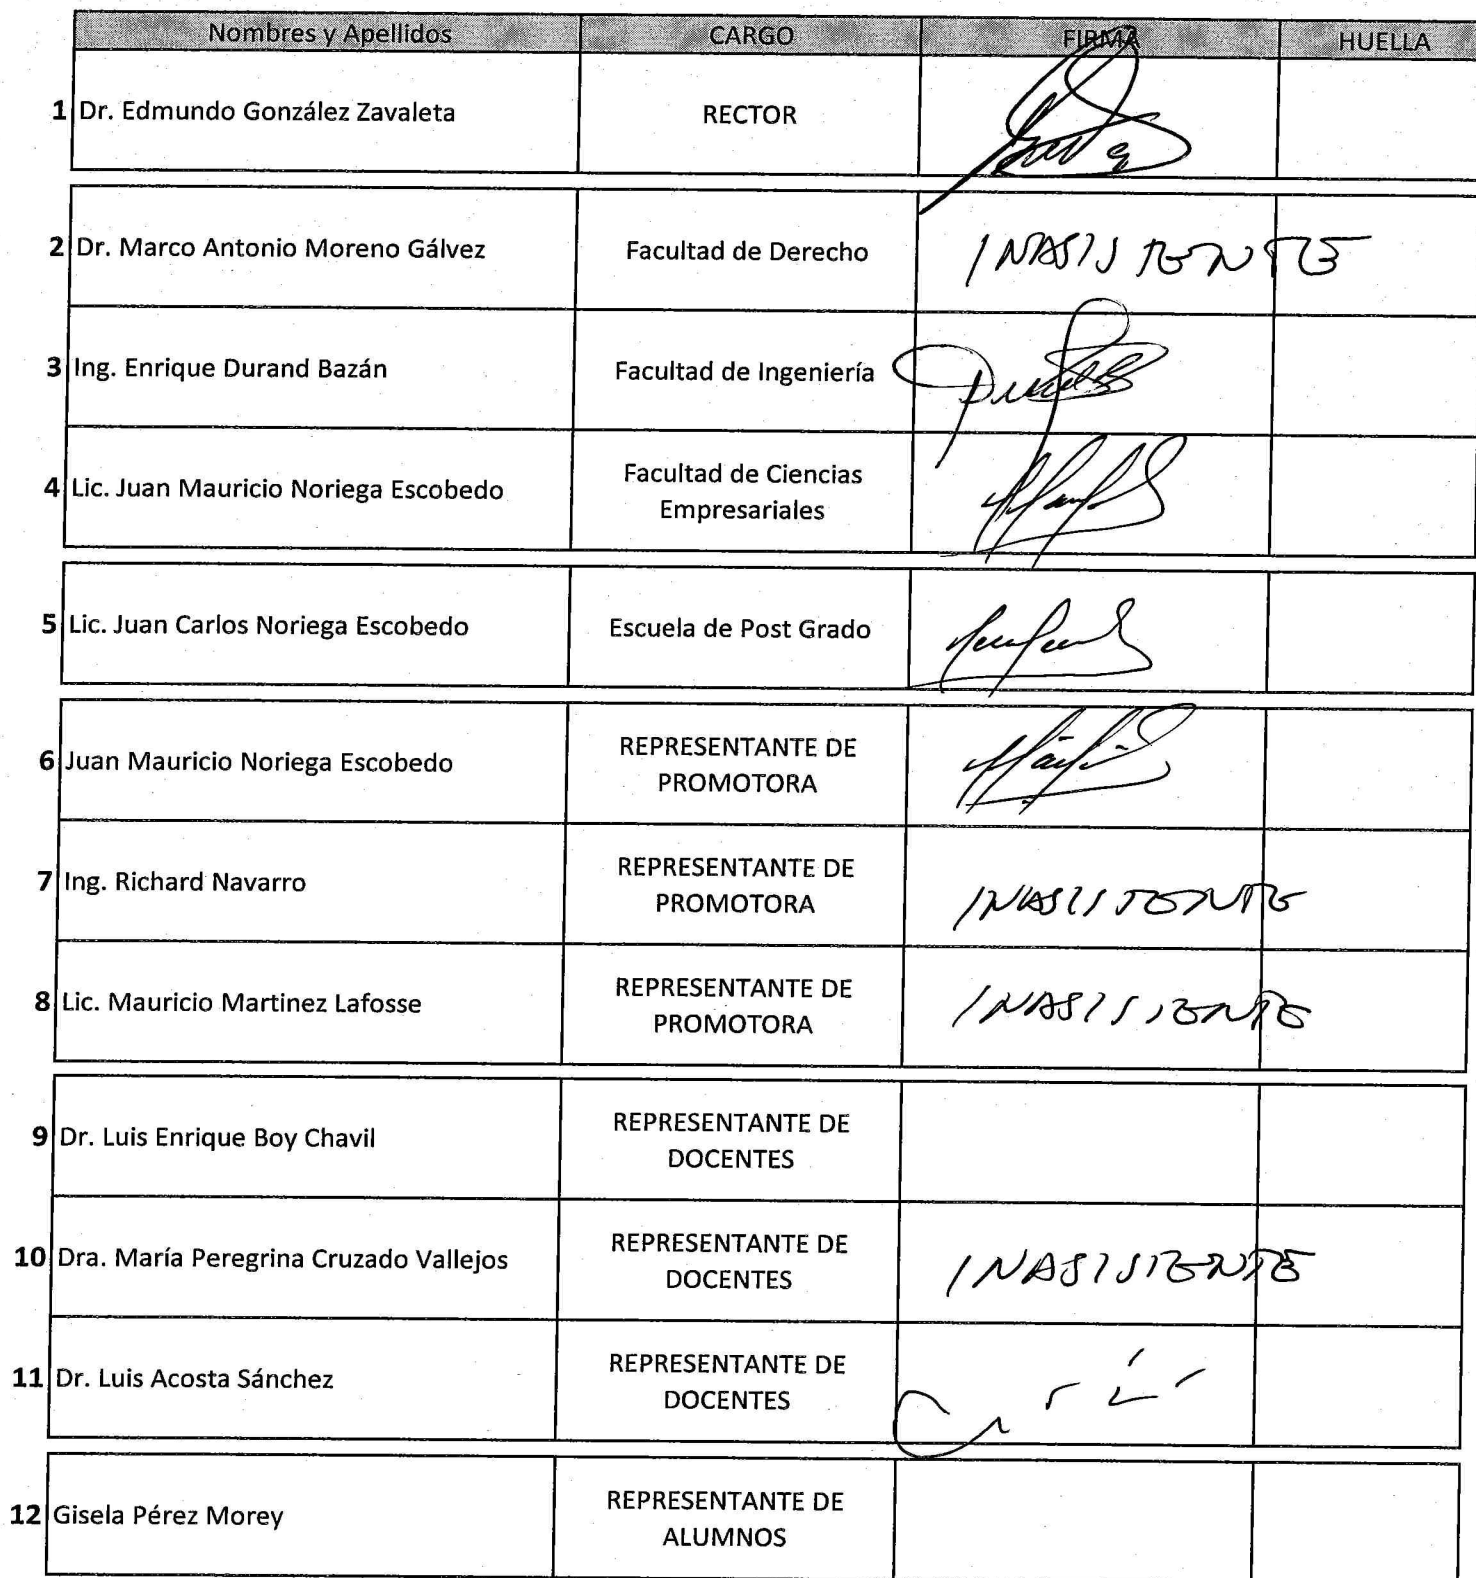 Nombres y Apellidos CARGO FIRMA HUELLA
1 Dr. Edmundo González Zavaleta RECTOR
2 Dr. Marco Antonio Moreno Gálvez Facultad de Derecho INASISTENTE
3 Ing. Enrique Durand Bazán Facultad de Ingeniería
4 Lic. Juan Mauricio Noriega Escobedo Facultad de Ciencias
Empresariales
5 Lic. Juan Carlos Noriega Escobedo Escuela de Post Grado
6 Juan Mauricio Noriega Escobedo REPRESENTANTE DE
PROMOTORA
7 Ing. Richard Navarro REPRESENTANTE DE
PROMOTORA INASISTENTE
8 Lic. Mauricio Martinez Lafosse REPRESENTANTE DE
PROMOTORA INASISTENTE
9 Dr. Luis Enrique Boy Chavil REPRESENTANTE DE
DOCENTES
10 Dra. María Peregrina Cruzado Vallejos REPRESENTANTE DE
DOCENTES INASISTENTE
11 Dr. Luis Acosta Sánchez REPRESENTANTE DE
DOCENTES
12 Gisela Pérez Morey REPRESENTANTE DE
ALUMNOS